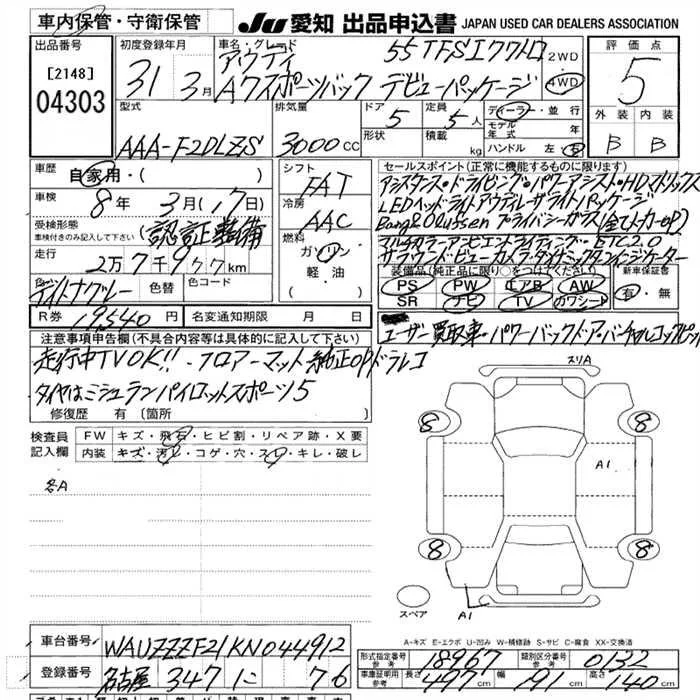 車内保管・守衛保管
JU 愛知 出品申込書 JAPAN USED CAR DEALERS ASSOCIATION
出品番号
[2148]
04303
初度登録年月
31年 3月
車名・グレード
アウディ 55TFSIクワトロ
A7スポーツバック デビューパッケージ
2WD
4WD
評価点
5
外装 内装
B B
型式
AAA-F2DLZS
排気量
3000CC
ドア 5
形状
定員 5人
積載 kg
ディーラー・並行
モデル年式 年
ハンドル 左・右
車歴
自家用・( )
車検
8年 3月(17日)
受検形態
車検付きのみ記入して下さい
(認証整備
走行
2万7千977km
色
デイトナグレー
色替
色コード
R券 19540円
名変通知期限 月 日
シフト
FAT
冷房
AAC
燃料
ガソリン
軽油
セールスポイント(正常に機能するものに限ります)
アシスタンス・ドライビング・パワーアシスト・HDマトリックス
LEDヘッドライトアウディレーザーライトパッケージ
Bang&Olufsen プライバシーガラス(全てトカーOP)
マルチカラーアンビエントライティング・ETC2.0
サラウンドビューカメラ・ダイナミックターンインジケーター
装備品(純正品に限り○をつけてください)
PS PW エアB AW
SR ナビ TV カワシート
新車保証書
有・無
ユーザー買取車・パワーバックドア・バーチャルコックピット
注意事項申告欄(不具合内容等は具体的に記入して下さい)
走行中TVOK!!・フロアーマット純正OPドラレコ
タイヤはミシュランパイロットスポーツ5
修復歴 有 〔箇所
検査員記入欄
FW キズ・飛石・ヒビ割・リペア跡・X要
内装 キズ・汚レ・コゲ・穴・スレ・キレ・破レ
各A
スリA
8 8
A1
8 8
スペア
A1
A-キズ E-エクボ U-凹み W-補修跡 S-サビ C-腐食 XX-交換済
車台番号 WAUZZZF21KN044912
登録番号 名古屋 347 に 76
形式指定番号 参考 18967
類別区分番号 参考 0132
車庫証明用 参考 長さ 497cm 幅 191cm 高さ 140cm